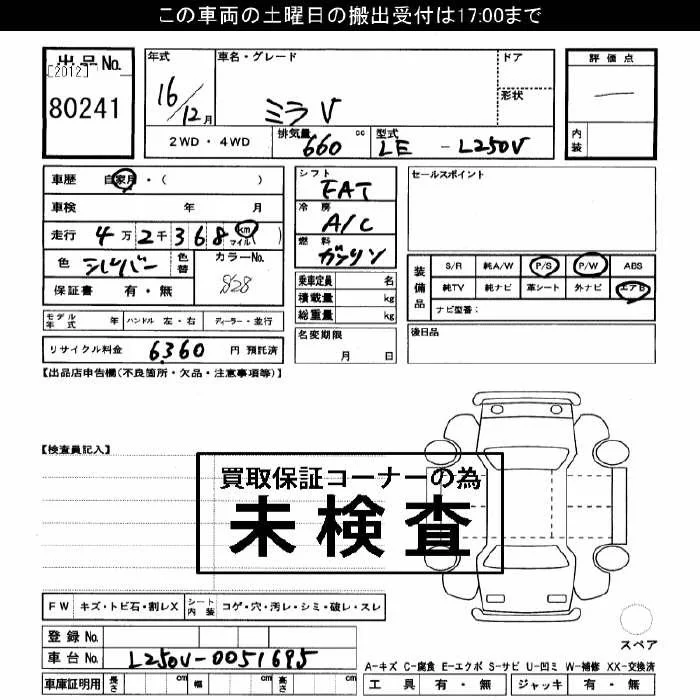 この車両の土曜日の搬出受付は17:00まで
出品No. 年式 車名・グレード ドア 評価点
[2012]
80241 16/12月 ミラV 形状 —
2WD・4WD 排気量 660 cc 型式 LE - L250V 内装
車歴 自家用・( ) シフト FAT セールスポイント
車検 年 月 冷房 A/C
走行 4万2千368 km マイル ( ) 燃料 ガソリン
色 シルバー 色替 カラーNo. S28 乗車定員 名 装備品 S/R 純A/W P/S P/W ABS
保証書 有・無 積載量 kg 純TV 純ナビ 革シート 外ナビ エアB
総重量 kg ナビ型番:
モデル年式 年 ハンドル 左・右 ディーラー・並行 名変期限 後日品
リサイクル料金 6360 円 預託済 月 日
【出品店申告欄(不良箇所・欠品・注意事項等)】
【検査員記入】
買取保証コーナーの為
未検査
FW キズ・トビ石・割レX シート内装 コゲ・穴・汚レ・シミ・破レ・スレ
登録No. スペア
車台No. L250V-0051695
A-キズ C-腐食 E-エクボ S-サビ U-凹ミ W-補修 XX-交換済
車庫証明用 長さ cm 幅 cm 高さ cm 工具 有・無 ジャッキ 有・無